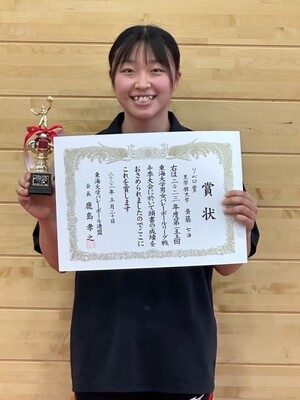 賞状
リベロ賞
至学館大学　斉藤七海
右は二〇二三年度第一五五回
東海大学男女バレーボールリーグ戦
春季大会に於いて頭書の成績を
おさめられましたのでここに
これを賞します
二〇二三年五月二十日
東海大学バレーボール連盟
会長　鹿島孝之